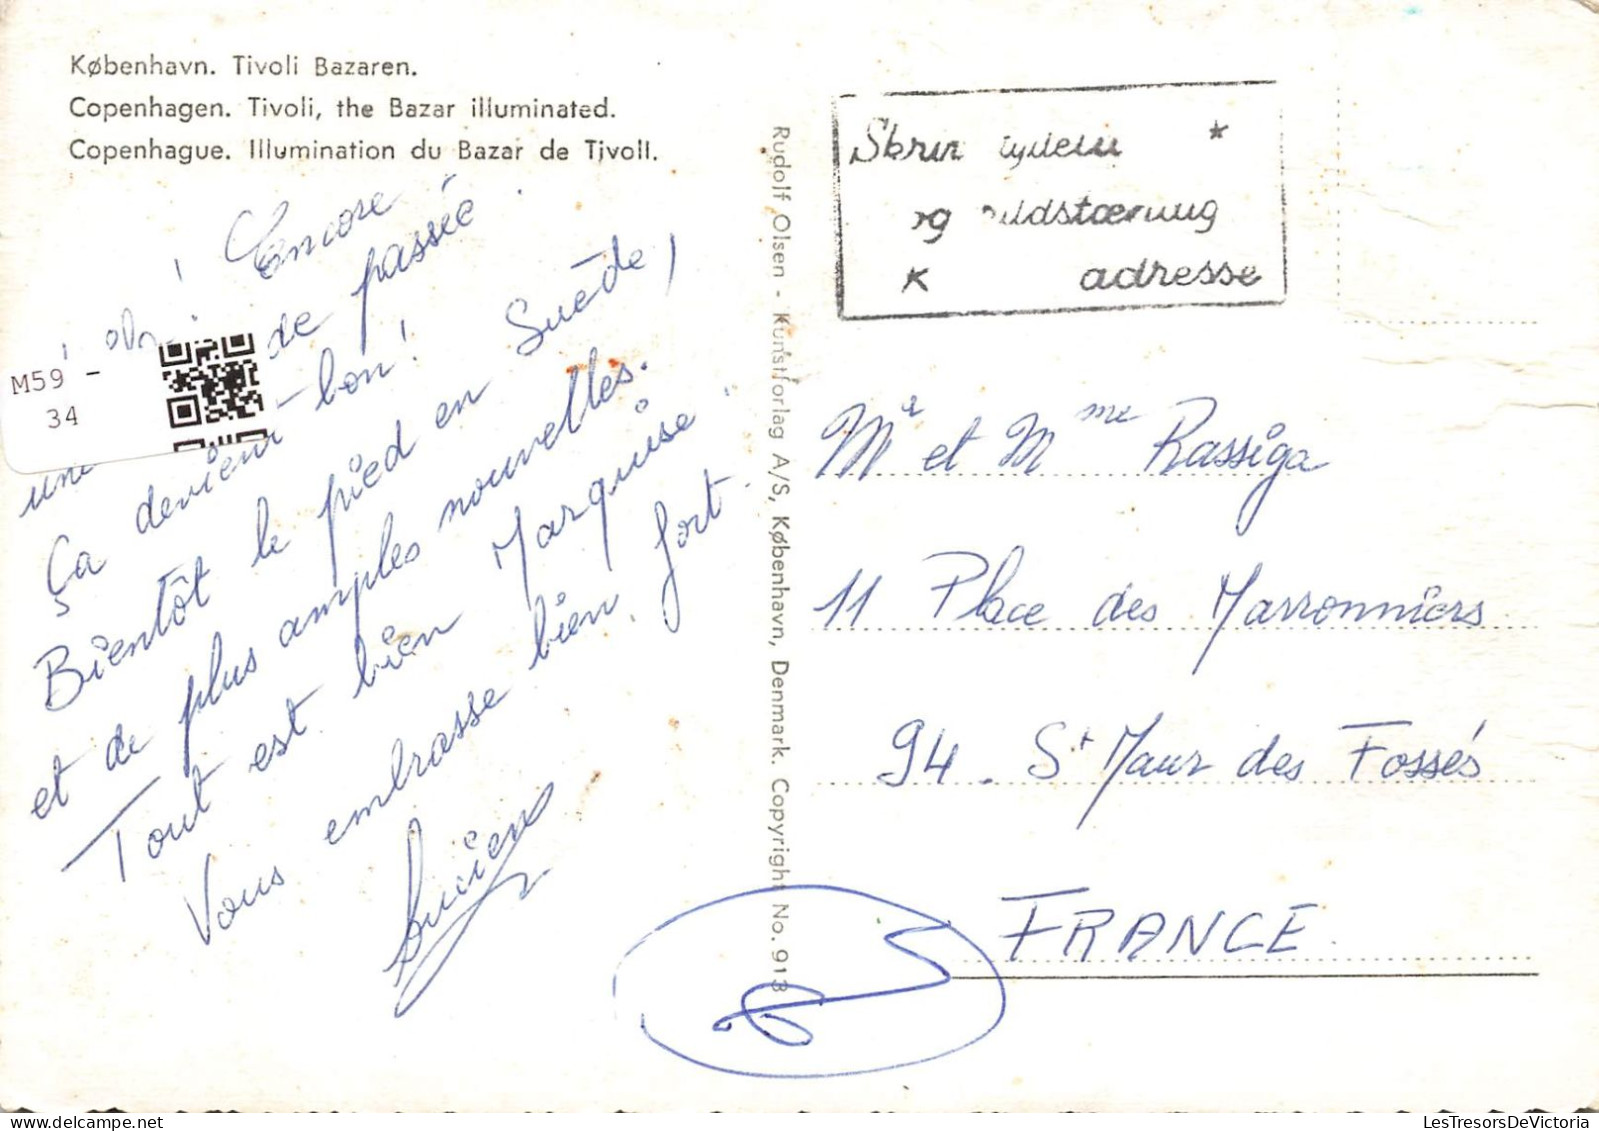 København. Tivoli Bazaren.
Copenhagen. Tivoli, the Bazar illuminated.
Copenhague. Illumination du Bazar de Tivoli.
! Encore
de passée
une
Ça devient bon!
Bientôt le pied en Suède,
et de plus amples nouvelles.
Tout est bien "Marquise"
Vous embrasse bien fort.
Lucien
M59 -
34
Rudolf Olsen - Kunstforlag A/S, København, Denmark. Copyright No. 913
Skriv tydelig *
og fuldstændig
* adresse
Mr et Mme Rassiga
11 Place des Marronniers
94. St Maur des Fossés
FRANCE
LesTresorsDeVictoria.com